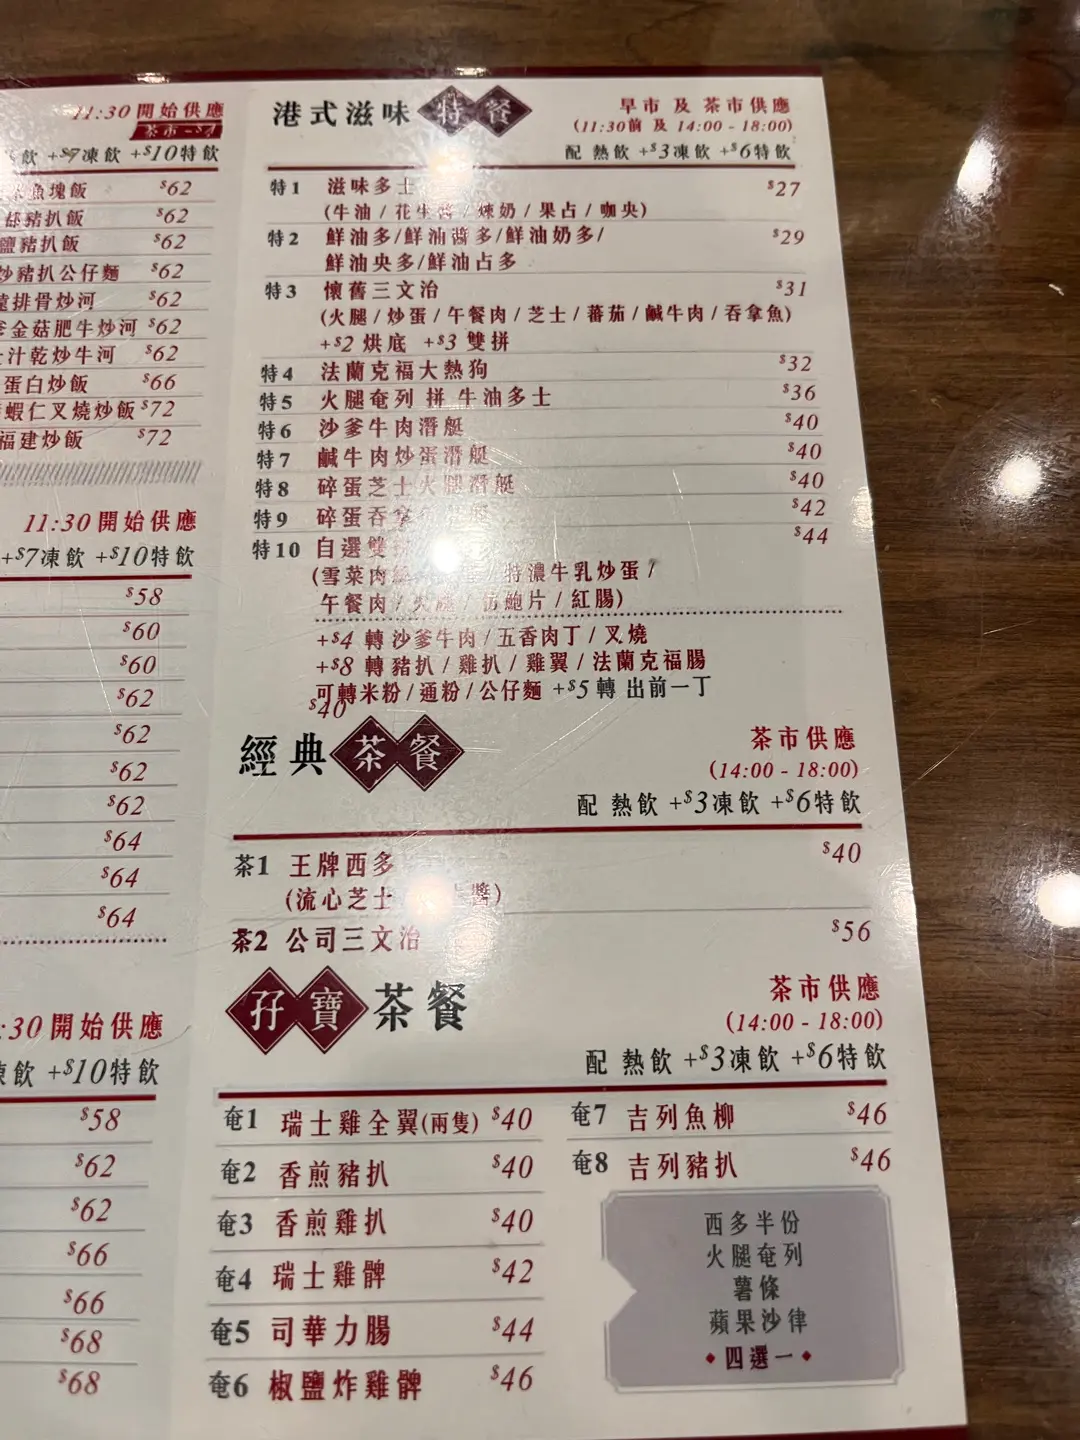 11:30 開始供應
茶市 -$4
飲 +$7凍飲 +$10特飲
魚塊飯 $62
豬扒飯 $62
鹽豬扒飯 $62
炒豬扒公仔麵 $62
排骨炒河 $62
金菇肥牛炒河 $62
汁乾炒牛河 $62
蛋白炒飯 $66
蝦仁叉燒炒飯 $72
福建炒飯 $72
11:30 開始供應
+$7凍飲 +$10特飲
$58
$60
$60
$62
$62
$62
$62
$64
$64
$64
:30 開始供應
凍飲 +$10特飲
$58
$62
$62
$66
$66
$68
$68
港式滋味 特餐
早市 及 茶市供應
(11:30前 及 14:00 - 18:00)
配 熱飲 +$3凍飲 +$6特飲
特1 滋味多士 $27
(牛油 / 花生醬 / 煉奶 / 果占 / 咖央)
特2 鮮油多/鮮油醬多/鮮油奶多/ $29
鮮油央多/鮮油占多
特3 懷舊三文治 $31
(火腿 / 炒蛋 / 午餐肉 / 芝士 / 蕃茄 / 鹹牛肉 / 吞拿魚)
+$2 烘底 +$3 雙拼
特4 法蘭克福大熱狗 $32
特5 火腿奄列 拼 牛油多士 $36
特6 沙爹牛肉潛艇 $40
特7 鹹牛肉炒蛋潛艇 $40
特8 碎蛋芝士火腿潛艇 $40
特9 碎蛋吞拿 艇 $42
特10 自選雙 $44
(雪菜肉 / 特濃牛乳炒蛋 /
午餐肉 / 火腿 / 鮑片 / 紅腸)
+$4 轉 沙爹牛肉 / 五香肉丁 / 叉燒
+$8 轉 豬扒 / 雞扒 / 雞翼 / 法蘭克福腸
可轉米粉 / 通粉 / 公仔麵 +$5 轉 出前一丁
$40
經典 茶餐
茶市供應
(14:00 - 18:00)
配 熱飲 +$3凍飲 +$6特飲
茶1 王牌西多 $40
(流心芝士 醬)
茶2 公司三文治 $56
孖寶 茶餐
茶市供應
(14:00 - 18:00)
配 熱飲 +$3凍飲 +$6特飲
奄1 瑞士雞全翼(兩隻) $40
奄2 香煎豬扒 $40
奄3 香煎雞扒 $40
奄4 瑞士雞髀 $42
奄5 司華力腸 $44
奄6 椒鹽炸雞髀 $46
奄7 吉列魚柳 $46
奄8 吉列豬扒 $46
西多半份
火腿奄列
薯條
蘋果沙律
◆ 四選一 ◆